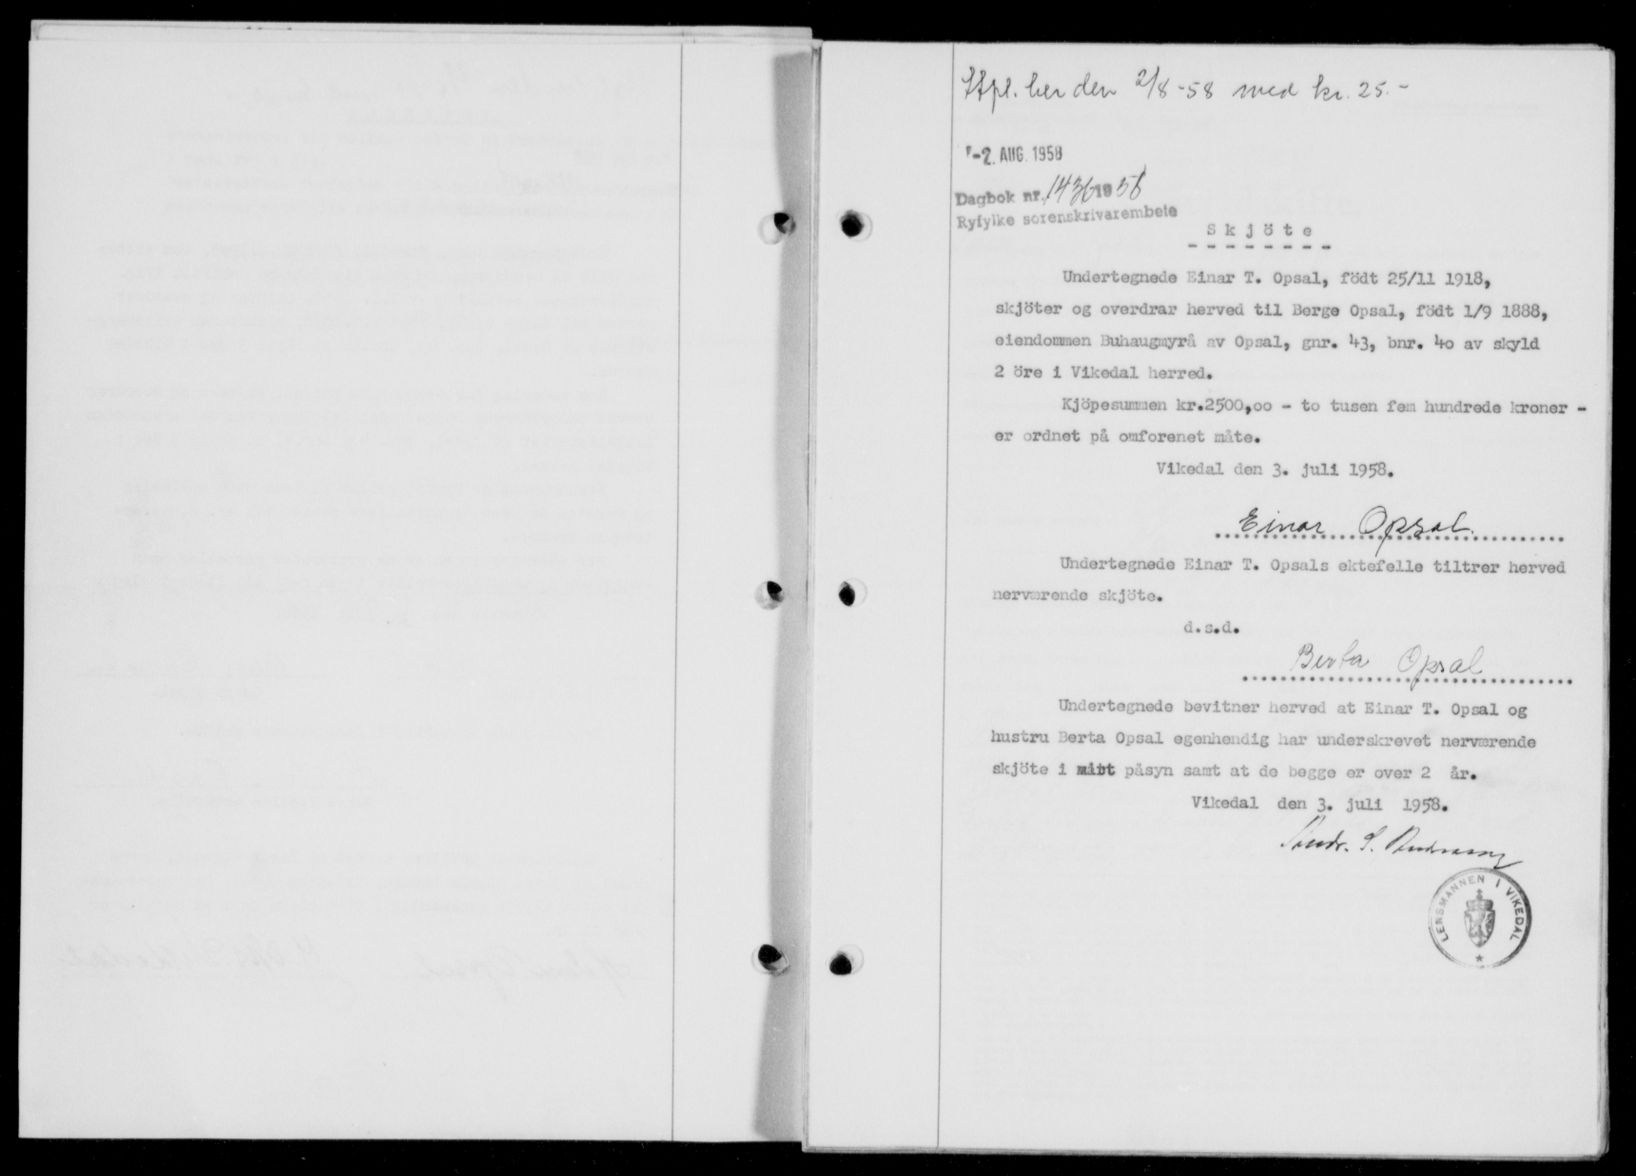 Stpl. her den 2/8-58 med kr. 25.-
-2. AUG. 1958
Dagbok nr. 1436 1958
Ryfylke sorenskrivarembete
Skjöte
Undertegnede Einar T. Opsal, födt 25/11 1918,
skjöter og overdrar herved til Berge Opsal, födt 1/9 1888,
eiendommen Buhaugmyrå av Opsal, gnr. 43, bnr. 4o av skyld
2 öre i Vikedal herred.
Kjöpesummen kr.2500,oo - to tusen fem hundrede kroner -
er ordnet på omforenet måte.
Vikedal den 3. juli 1958.
Einar Opsal
Undertegnede Einar T. Opsals ektefelle tiltrer herved
nerværende skjöte.
d.s.d.
Berta Opsal
Undertegnede bevitner herved at Einar T. Opsal og
hustru Berta Opsal egenhendig har underskrevet nerværende
skjöte i mitt påsyn samt at de begge er over 2 år.
Vikedal den 3. juli 1958.
LENSMANNEN I VIKEDAL